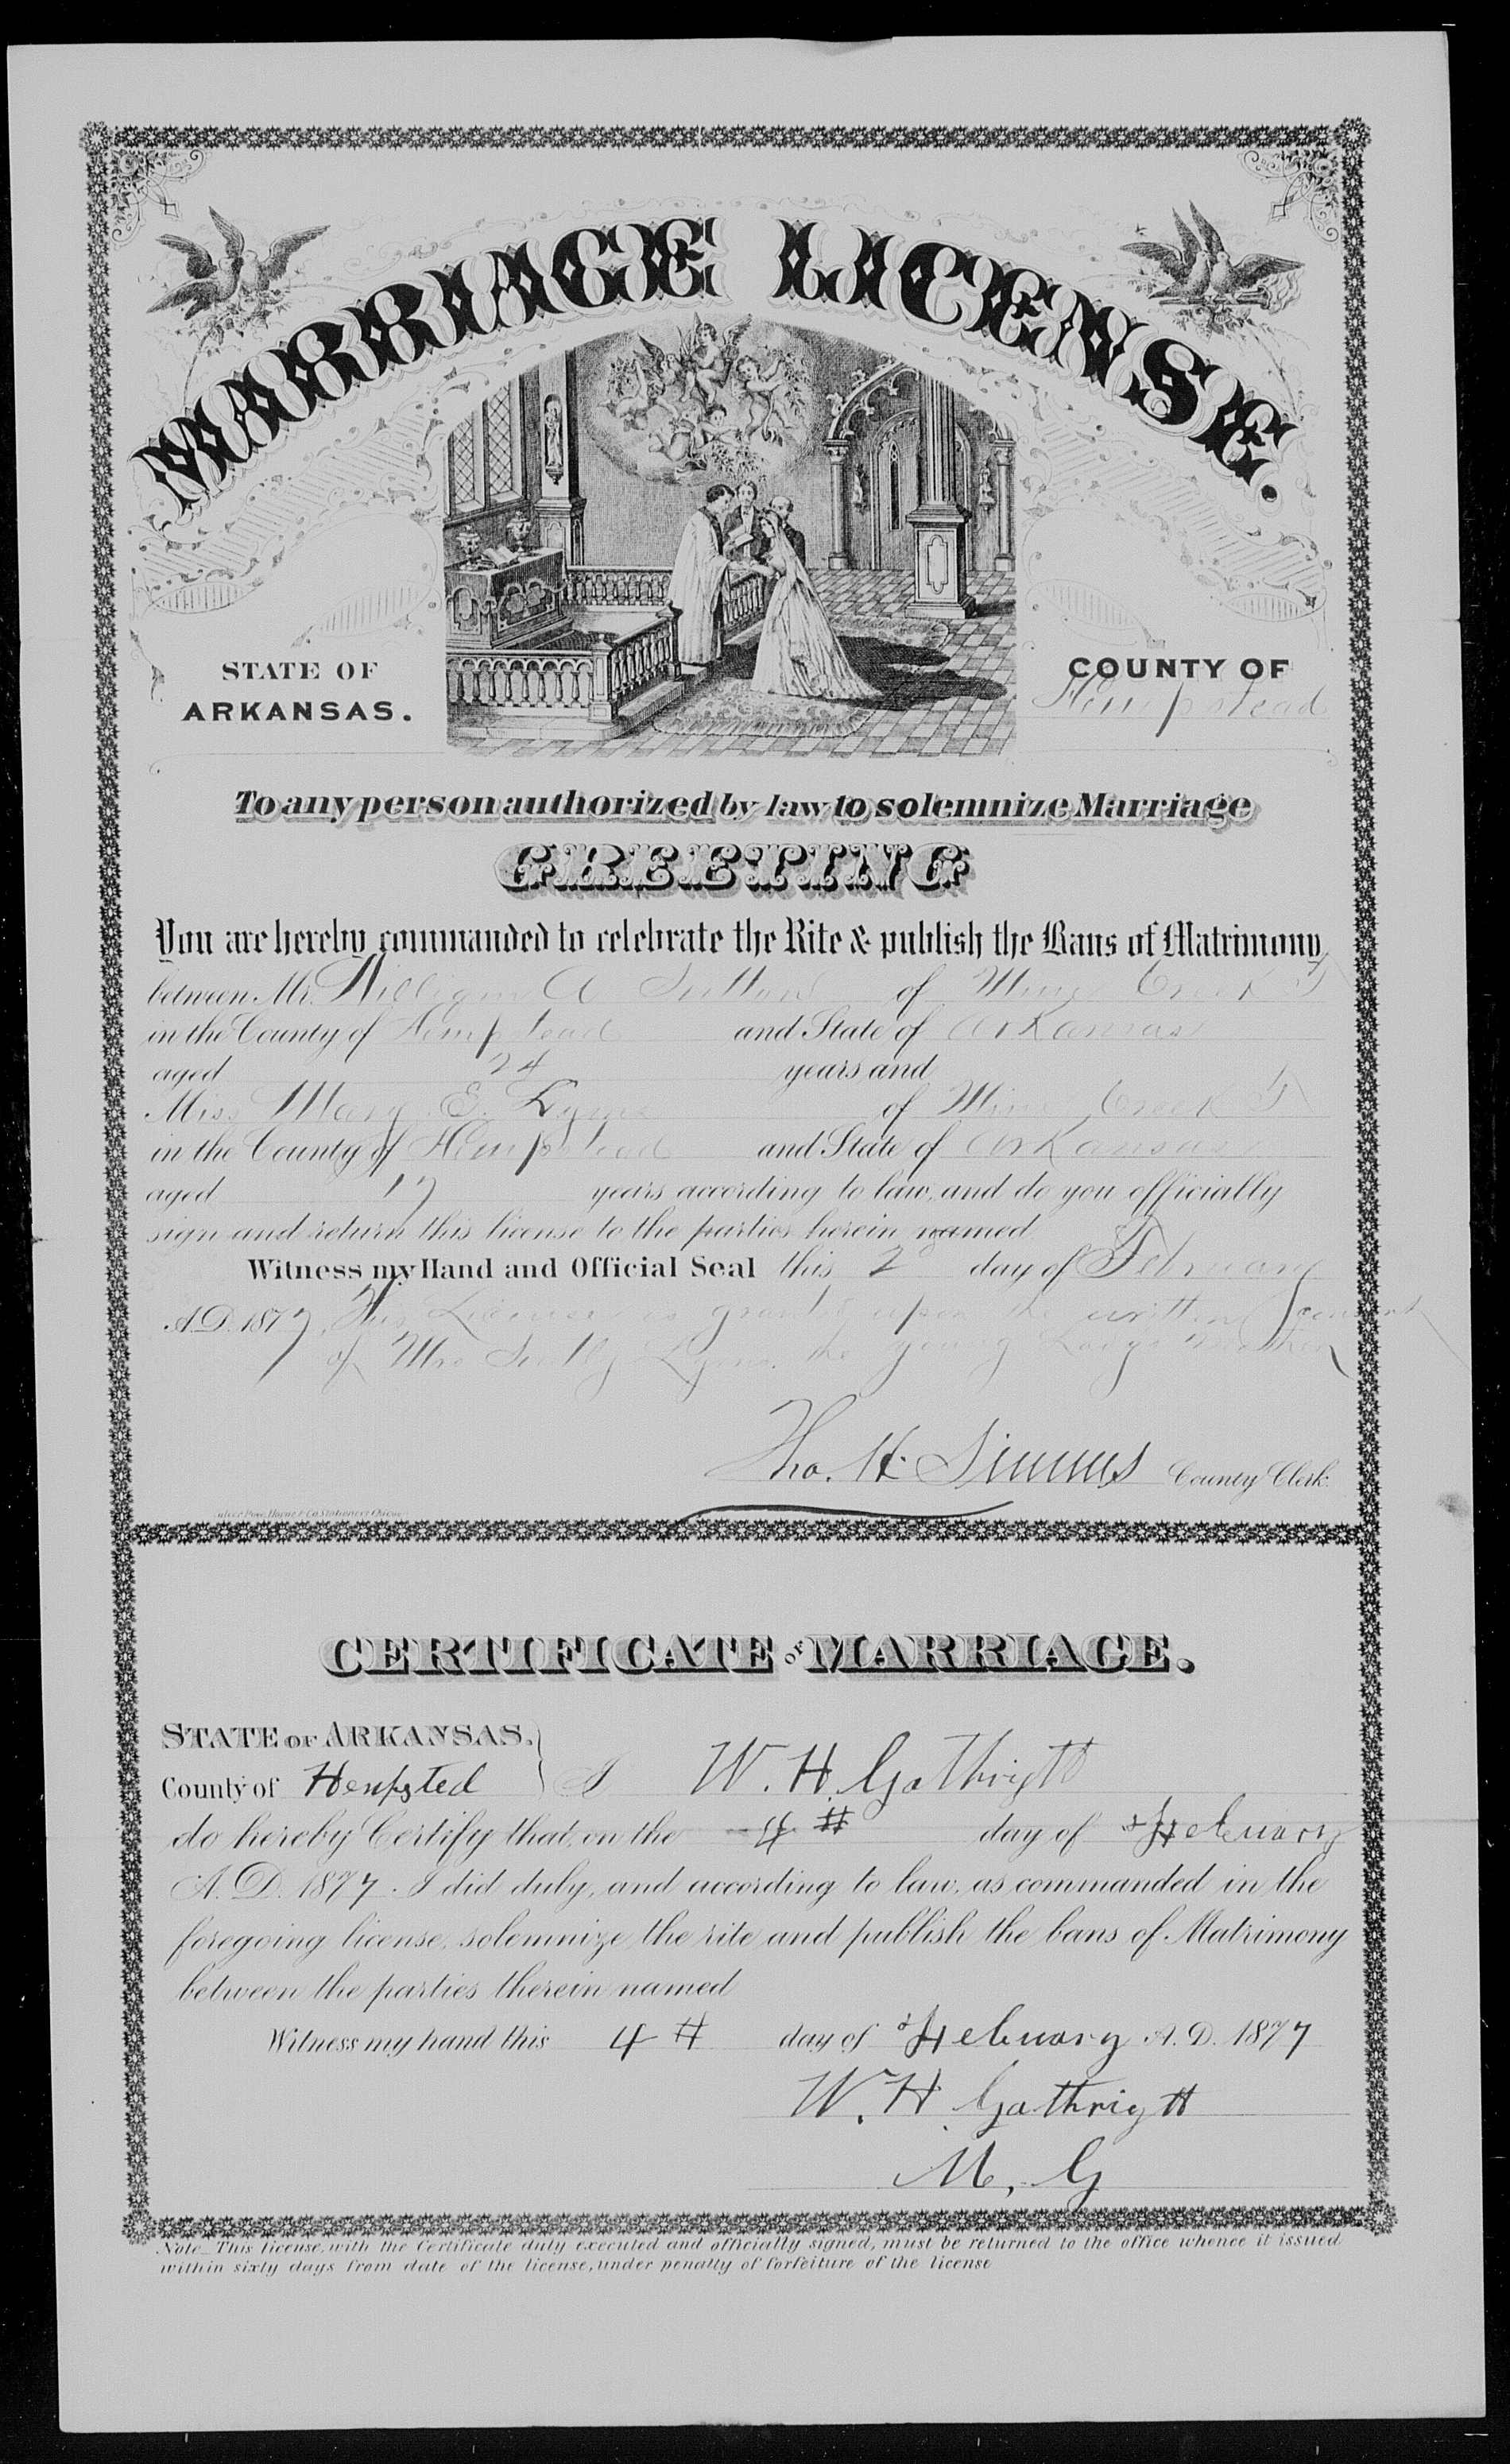 MARRIAGE LICENSE.
STATE OF
ARKANSAS.
COUNTY OF
Hempstead
To any person authorized by law to solemnize Marriage
GREETING
You are hereby commanded to celebrate the Rite & publish the Bans of Matrimony
between Mr. William A Sutton of Mine Creek T
in the County of Hempstead and State of Arkansas
aged 24 years and
Miss Mary E. Lyons of Mine Creek T
in the County of Hempstead and State of Arkansas
aged 17 years according to law, and do you officially
sign and return this license to the parties herein named
Witness my Hand and Official Seal this 2 day of February
A.D. 1877, This License is granted upon the written consent
of Mrs Lyons the young
Tho. H Simms County Clerk.
CERTIFICATE OF MARRIAGE.
STATE OF ARKANSAS.
County of Hempsted } I W. H. Gathright
do hereby Certify that, on the 4th day of Febuary
A.D. 1877. I did duly, and according to law, as commanded in the
foregoing license, solemnize the rite and publish the bans of Matrimony
between the parties therein named
Witness my hand this 4th day of Febuary A.D. 1877
W. H Gathright
M. G
Note_This license, with the Certificate duly executed and officially signed, must be returned to the office whence it issued
within sixty days from date of the license, under penalty of forfeiture of the license